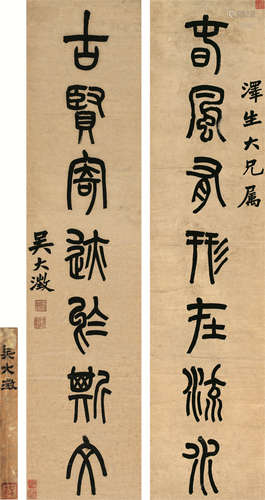 春風有形在流水
澤生大兄属
古賢寄迹於斯文
吳大澂
吳大澂